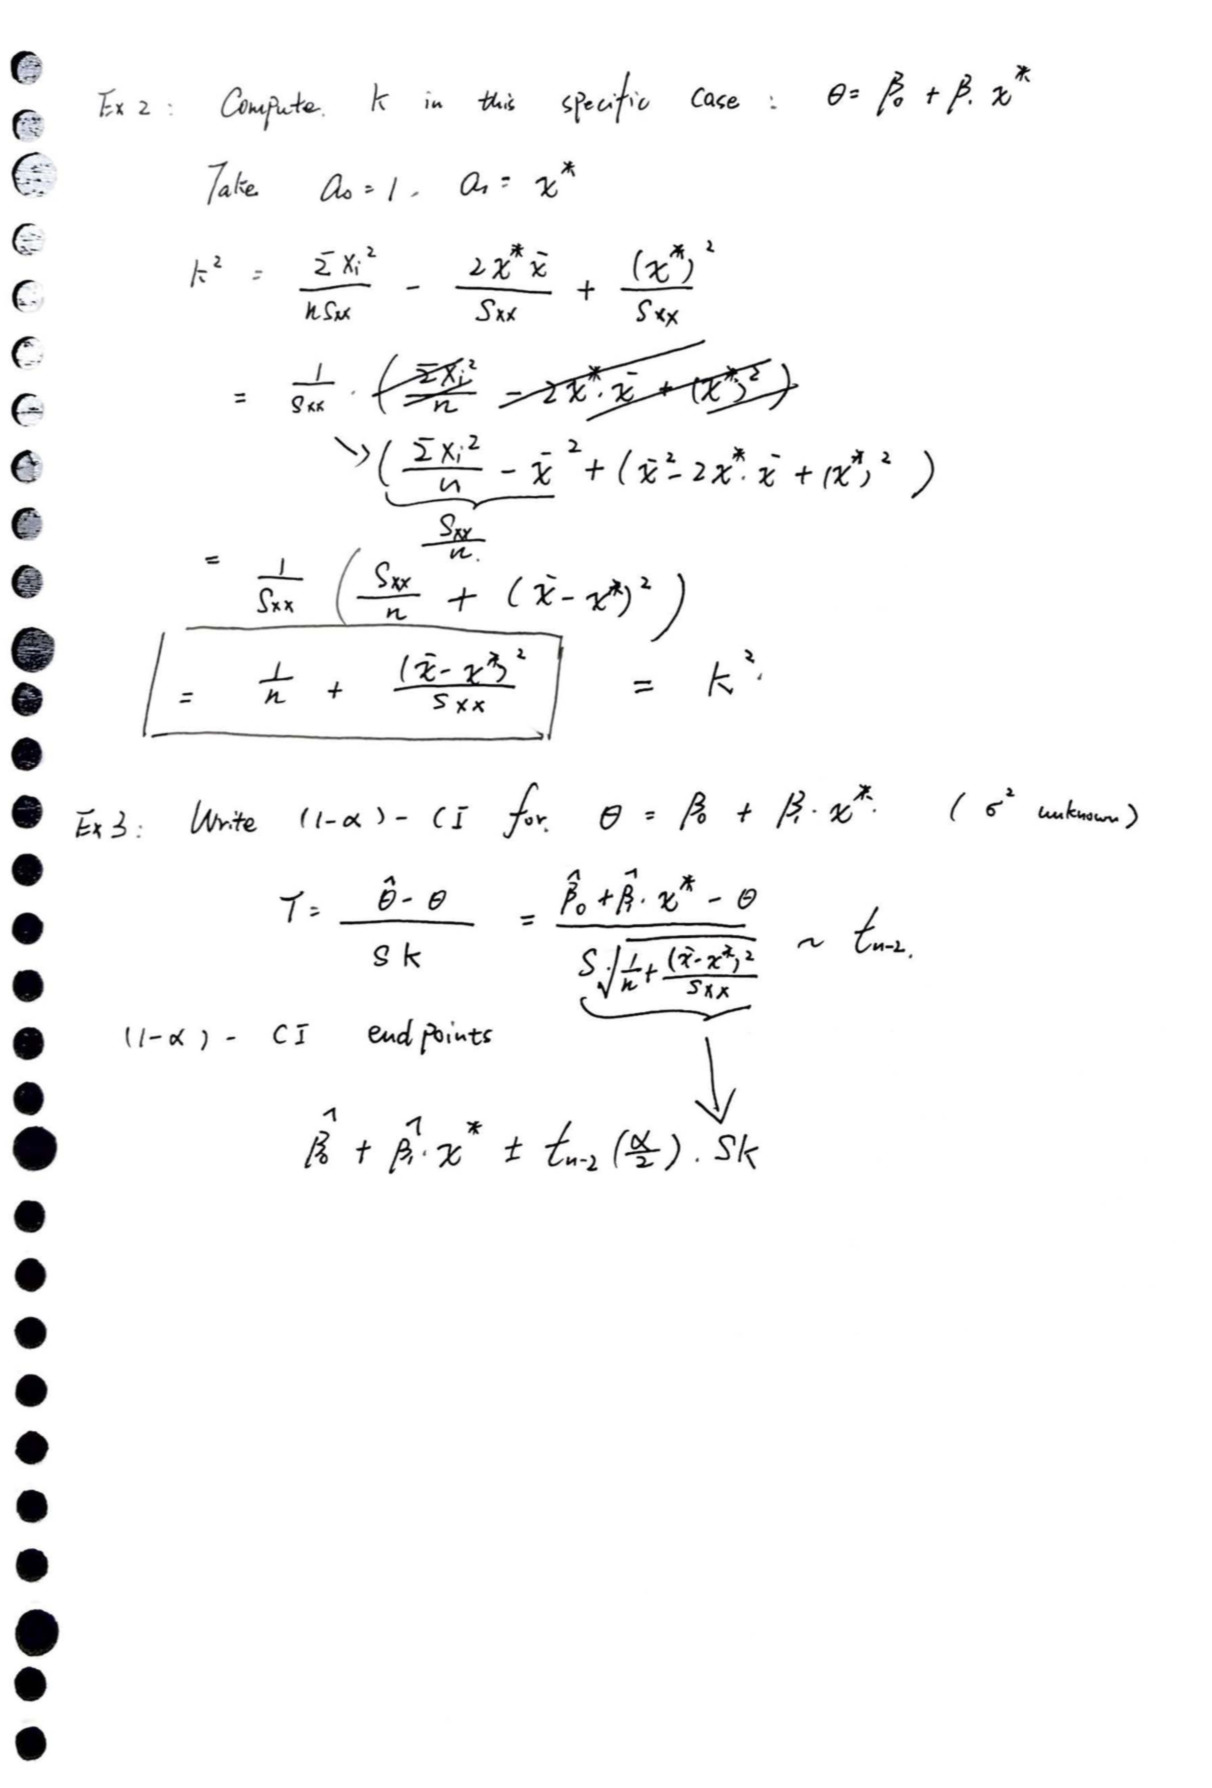 Ex 2: Compute. k in this specific case : θ = β₀ + β₁ x*
Take a₀ = 1. a₁ = x*
k² = Σxᵢ² / nSxx - 2x* x̄ / Sxx + (x*)² / Sxx
= 1/Sxx · (Σxᵢ²/n - 2x*·x̄ + (x*)²)
↘ (Σxᵢ²/n - x̄² + (x̄² - 2x*·x̄ + (x*)²)
Sxx/n.
= 1/Sxx (Sxx/n + (x̄ - x*)²)
= 1/n + (x̄ - x*)²/Sxx = k².
Ex 3: Write (1-α) - CI for. θ = β₀ + β₁·x*. (σ² unknown)
T = (θ̂ - θ)/(Sk) = (β̂₀ + β̂₁·x* - θ)/(S·√(1/n + (x̄ - x*)²/Sxx)) ~ tₙ₋₂.
(1-α) - CI endpoints
β̂₀ + β̂₁·x* ± tₙ₋₂(α/2). Sk